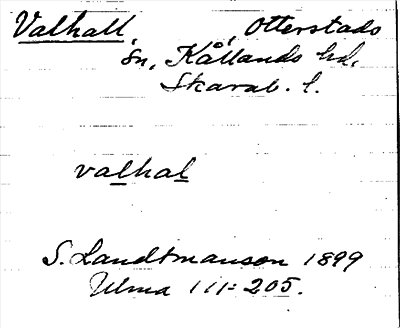 Valhall, , Otterstads
sn, Kållands hd,
Skarab. l.
valhal
S. Landtmanson 1899
Ulma 111:205.